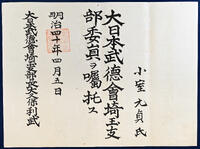 小室元貞氏
大日本武德會埼玉支
部委員ヲ囑托ス
明治四十年四月五日
大日本武德會埼玉支部長大久保利武